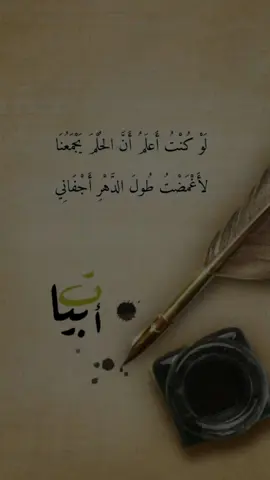 لَوْ كُنْتُ أَعلَمُ أَنَّ الحُلْمَ يَجْمَعُنَا
لأَغْمَضْتُ طُولَ الدَّهْرِ أَجْفَانِي
أبيات